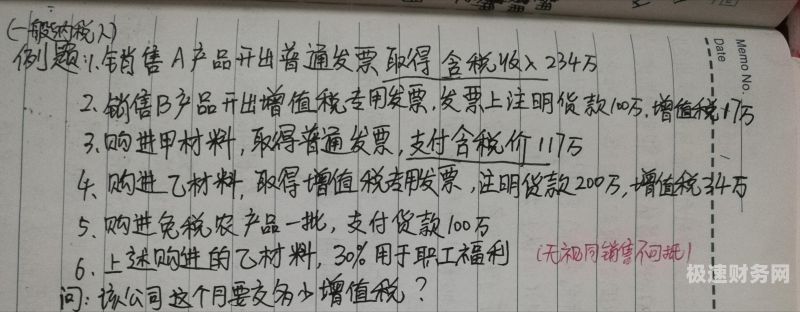 (一般纳税人)
例题:1.销售A产品开出普通发票取得含税收入234万
2.销售B产品开出增值税专用发票,发票上注明货款100万,增值税17万
3.购进甲材料,取得普通发票,支付含税价117万
4.购进乙材料,取得增值税专用发票,注明货款200万,增值税34万
5.购进免税农产品一批,支付货款100万
6.上述购进的乙材料,30%用于职工福利 (无视同销售不可抵)
问:该公司这个月要交多少增值税?
Memo No.
Date
极速财务网